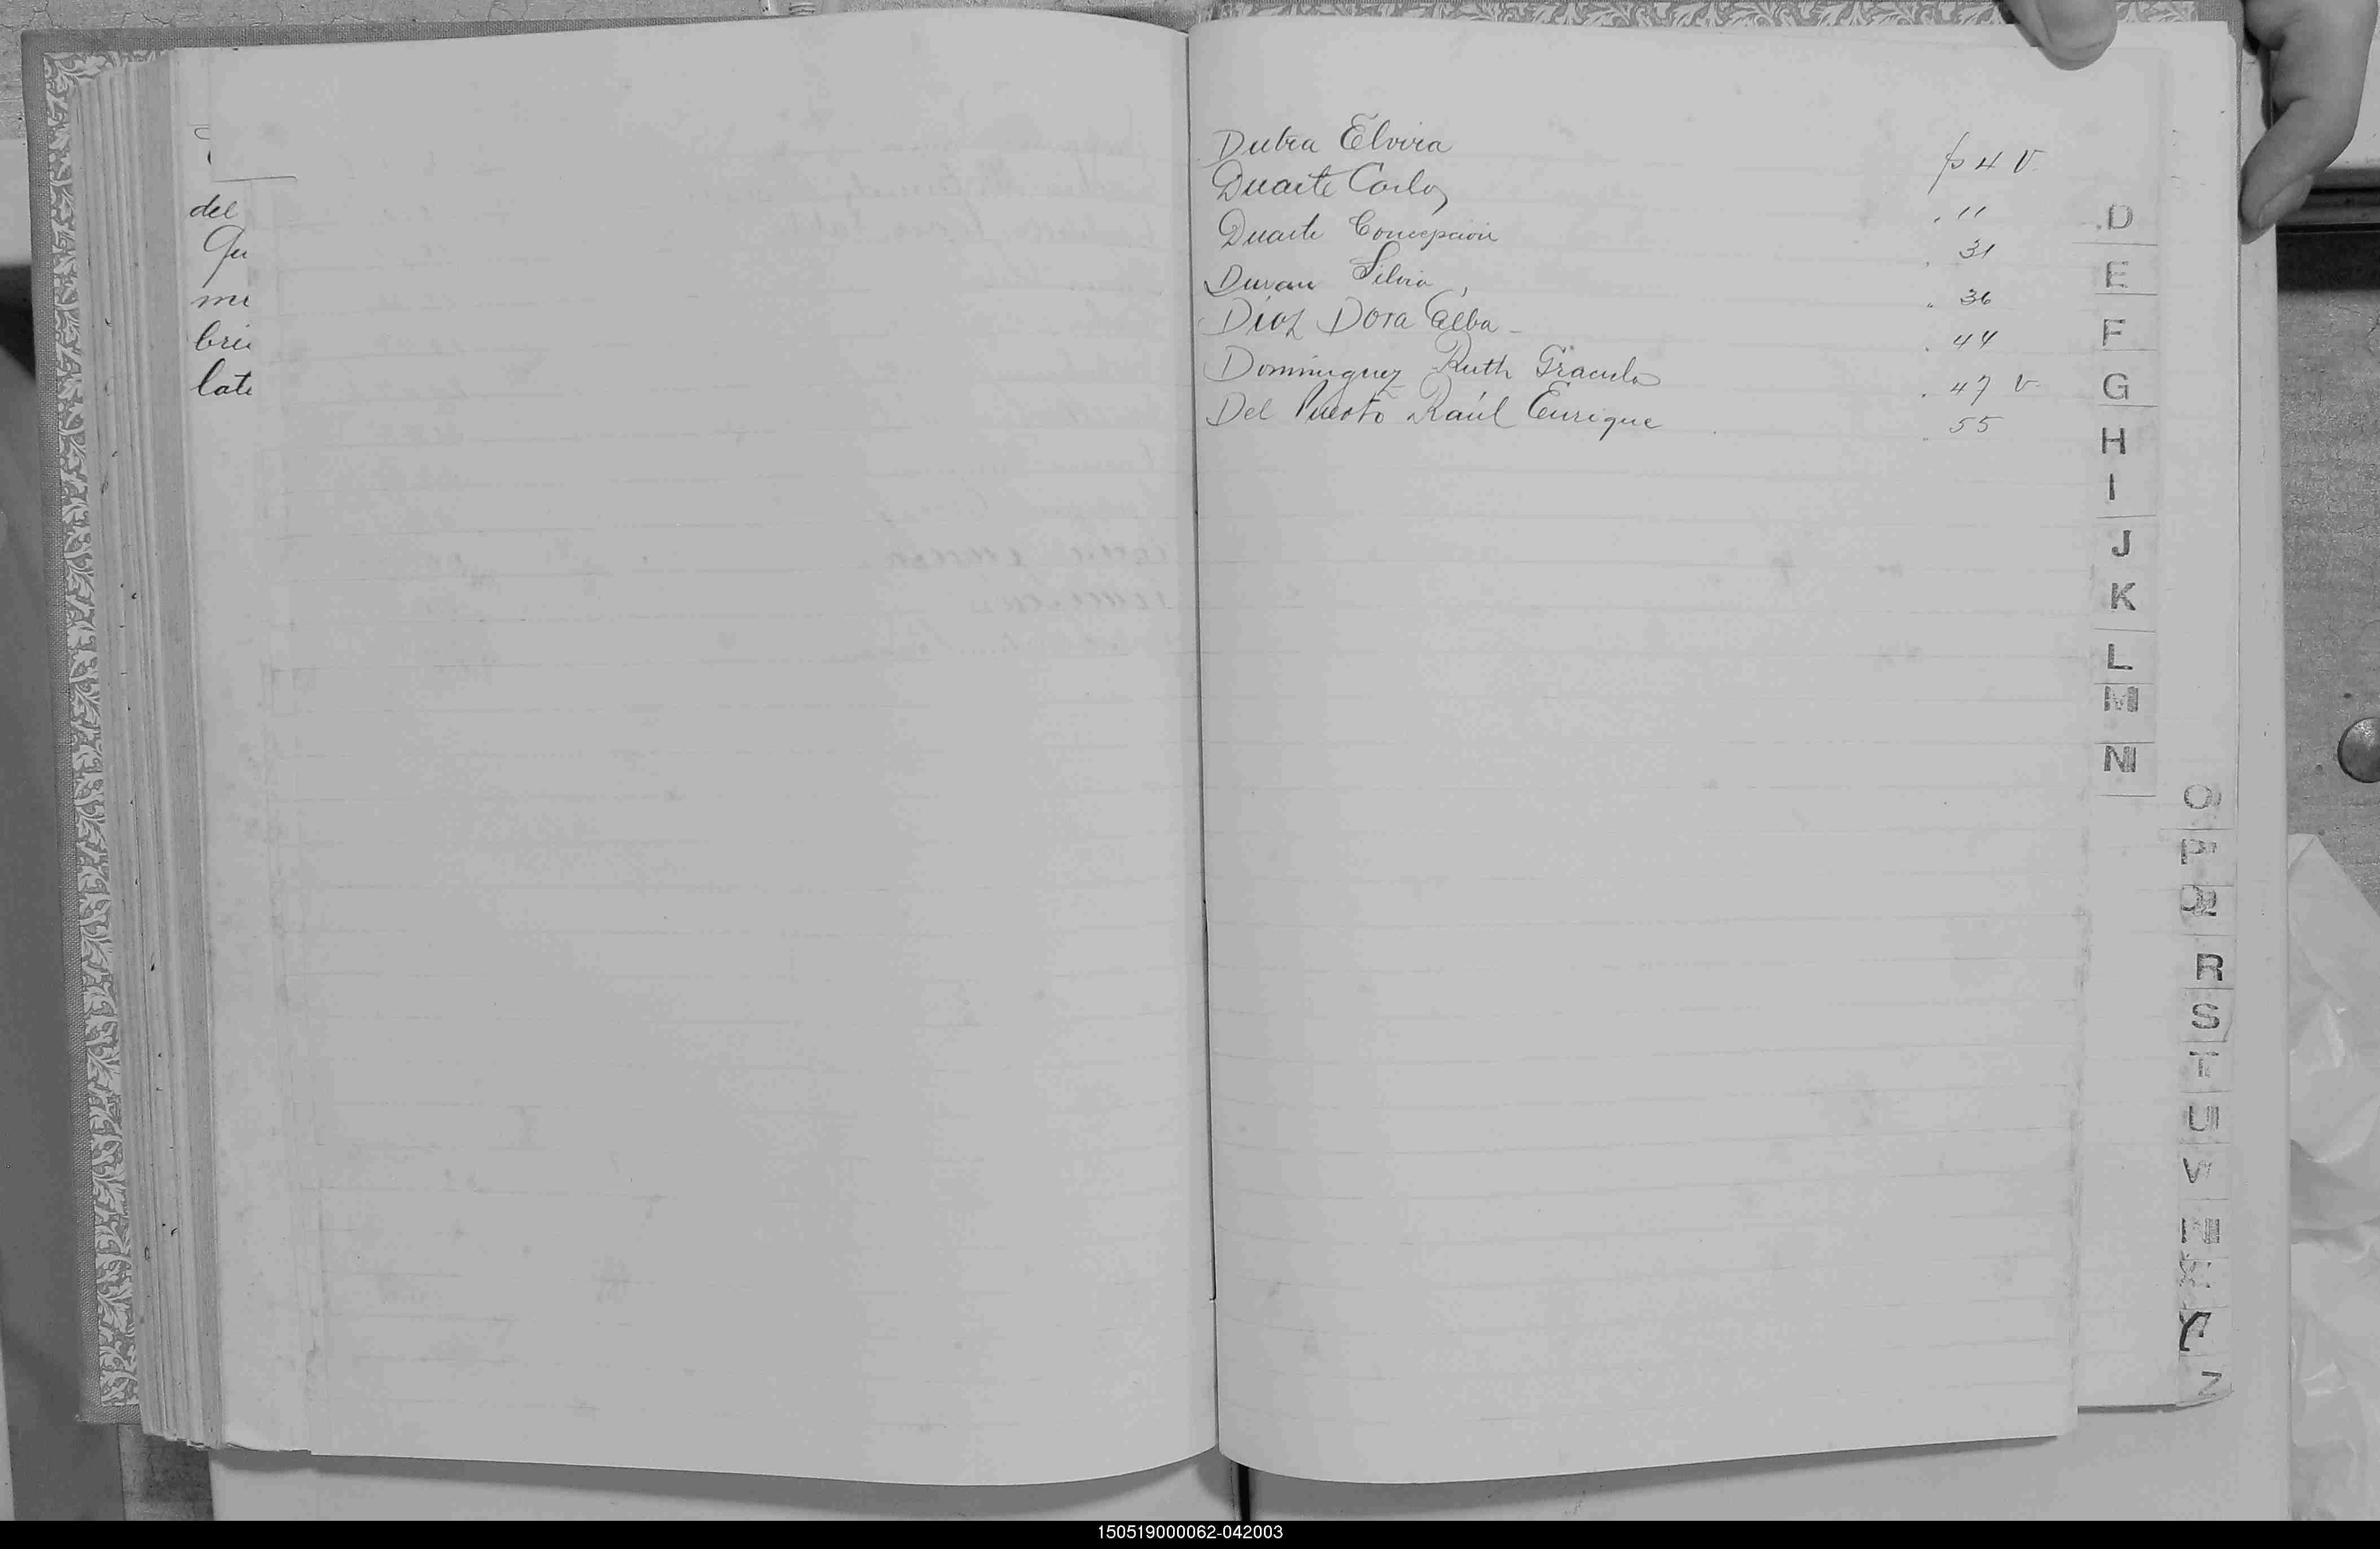 del
Qu
me
brie
late
Dutra Elvira f° 4 v.
Duarte Carlos " 11
Duarte Concepción " 31
Duran Silvia, " 36
Diaz Dora Elba - " 44
Dominguez Ruth Graciela " 47 v
Del Puerto Raúl Enrique " 55
D
E
F
G
H
I
J
K
L
M
N
O
P
Q
R
S
T
U
V
Y
Z
150519000062-042003